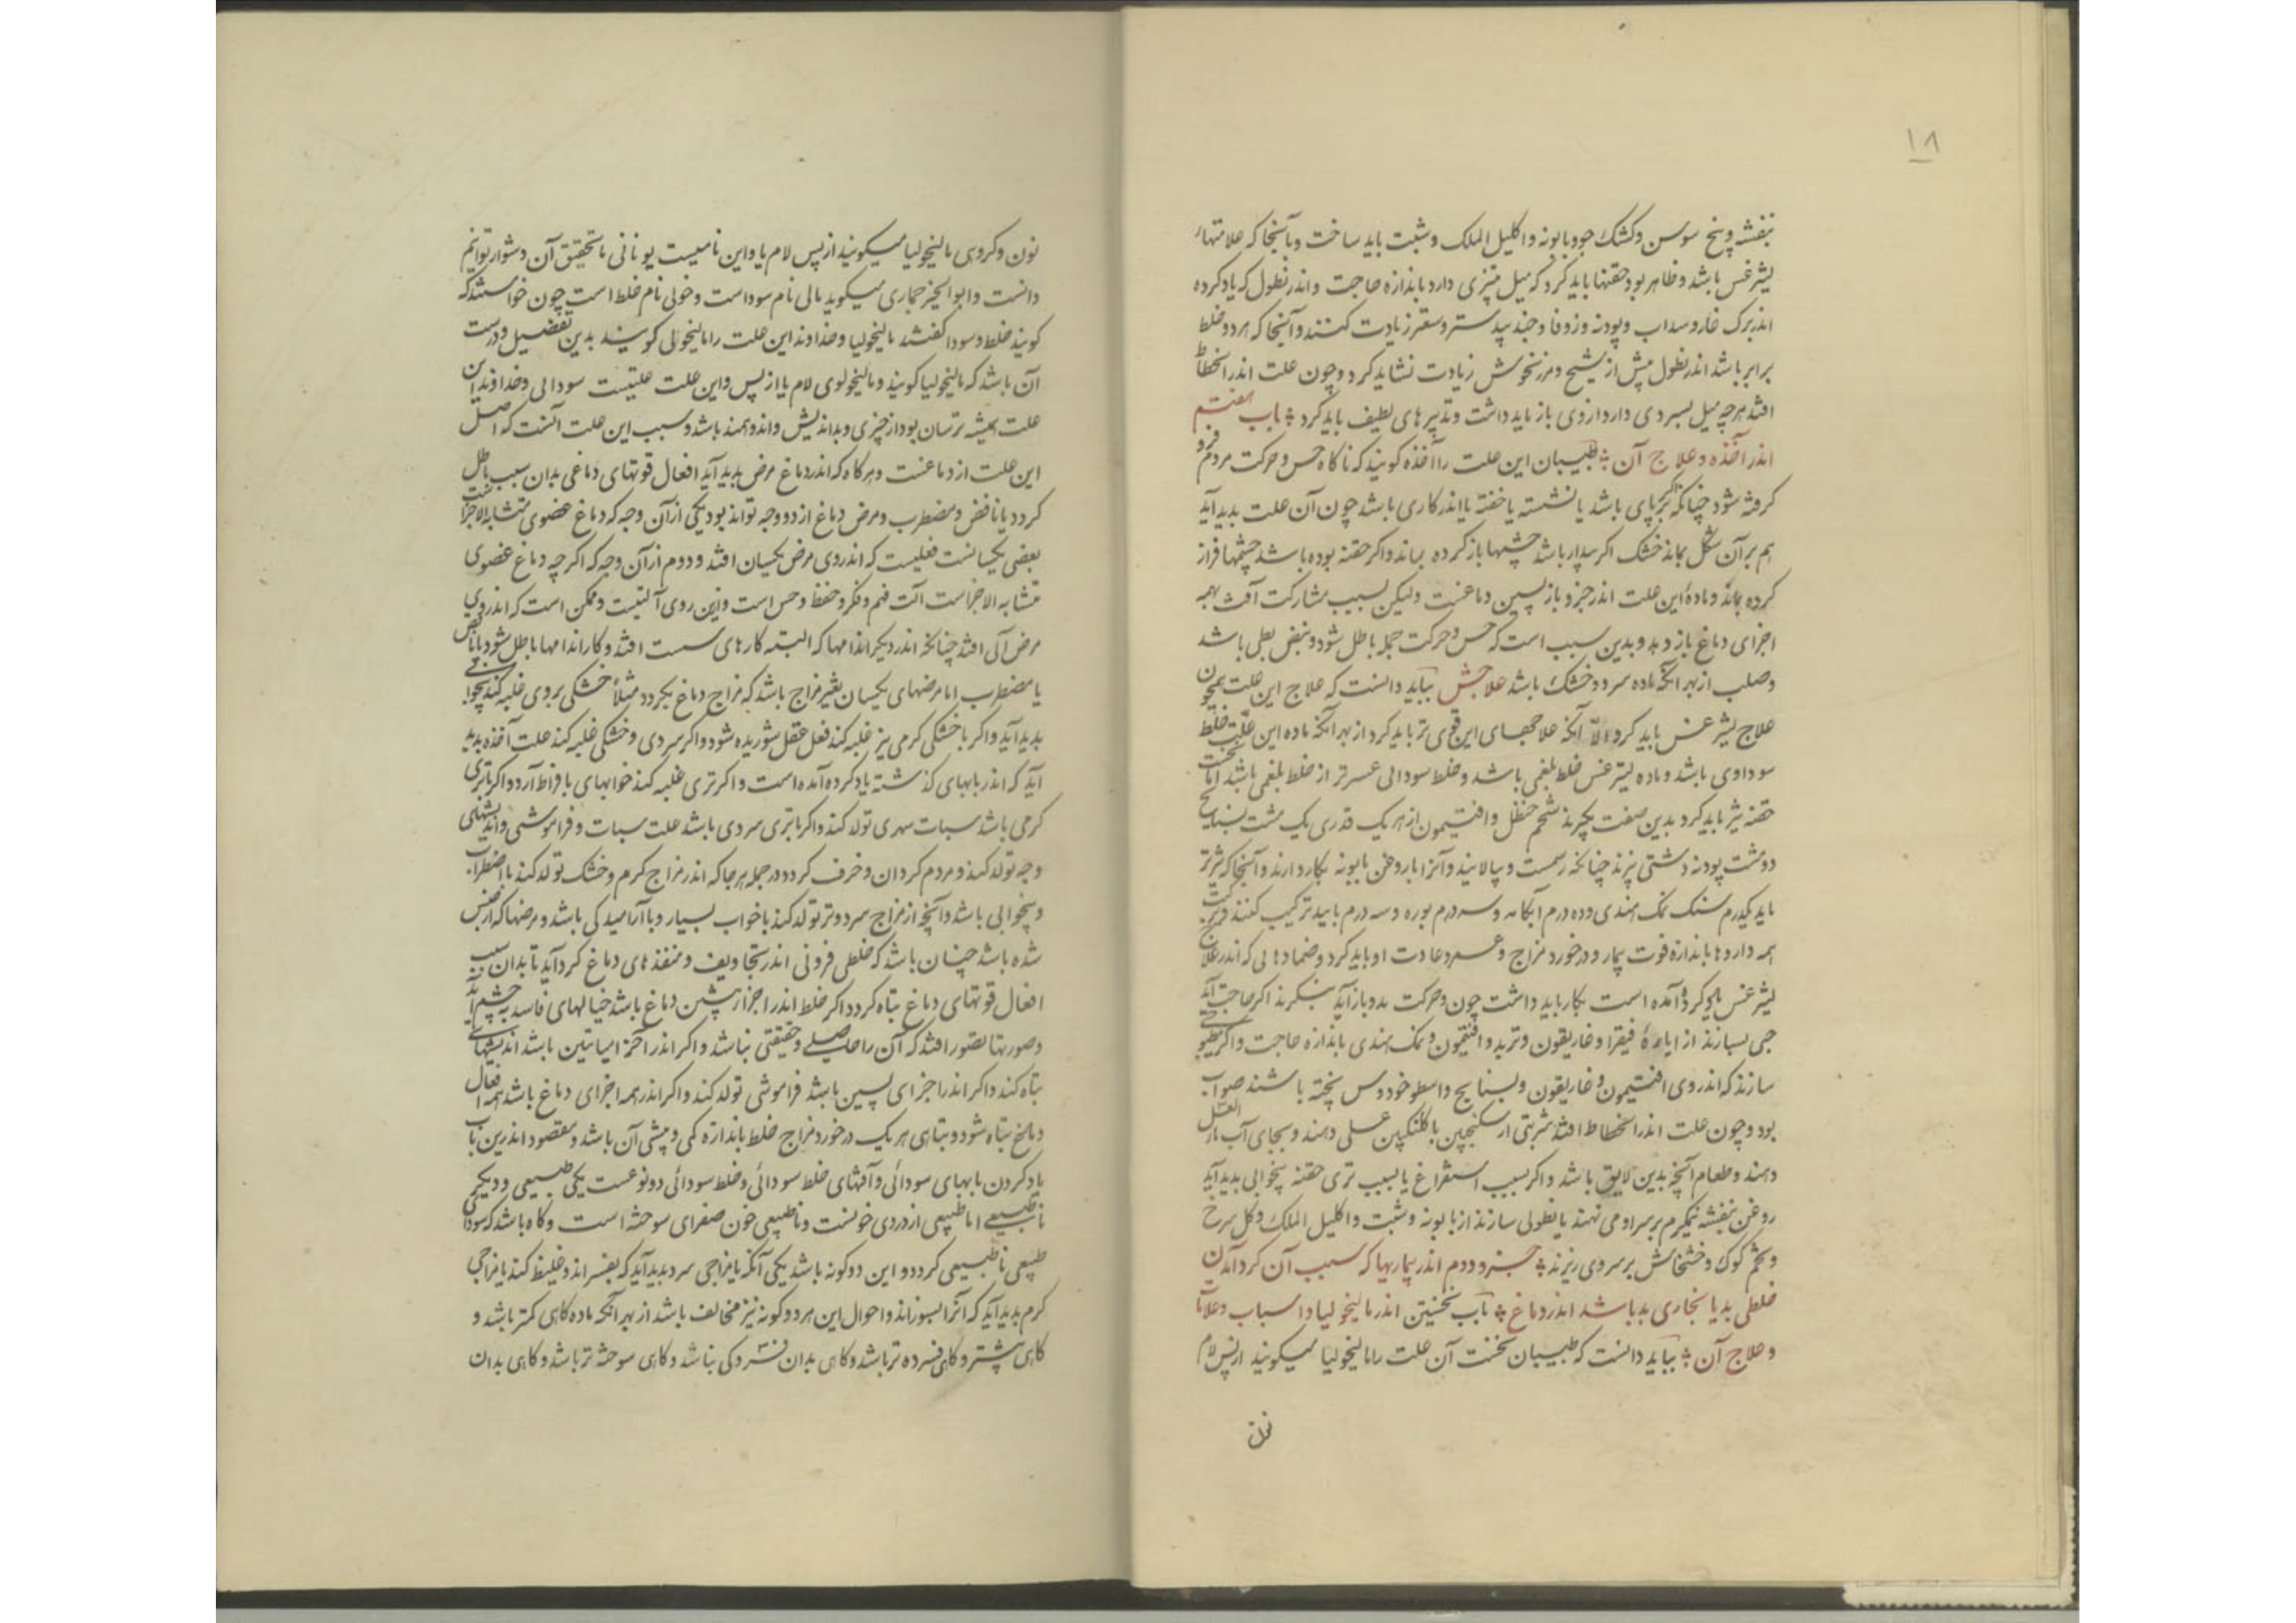 ۱۸
بنفشه و بیخ سوسن و کشک جو و بابونه و اکلیل الملک و شبت باید ساخت و بآنجا که علامتهاء
لیثرغس باشد و ظاهر بود حقنها باید کرد که میل بتیزی دارد باندازه حاجت و اندر نطول که یاد کرده
اند برک غار و سداب و پودنه و زوفا و جندبیدستر و سعتر زیادت کنند و آنجا که هر دو خلط
برابر باشد اندر نطول بیش از شیح و مرزنجوش زیادت نشاید کرد و چون علت اندر انحطاط
افتد هرچه میل بسردی دارد از وی باز باید داشت و تدبیرهای لطیف باید کرد باب هفتم
اندر آخذه و علاج آن طبیبان این علت را آخذه کویند که ناکاه حس و حرکت مردم فرو
کرفته شود چنانکه بر پای باشد یا نشسته یا خفته یا اندر کاری باشد چون آن علت پدید آید
هم بر آن شکل بماند خشک اکر بیدار باشد چشمها باز کرده بماند و اکر خفته بوده باشد چشمها فراز
کرده بماند و مادۀ این علت اندر جزو بازپسین دماغست ولیکن بسبب مشارکت آفت بهمه
اجزای دماغ باز دهد و بدین سبب است که حس و حرکت جمله باطل شود و نبض بطی باشد
و صلب از بهر آنکه ماده سرد و خشک باشد علاجش بباید دانست که علاج این علت همچون
علاج لیثرغس باید کرد الّا آنکه علاجهای این قوی تر باید کرد از بهر آنکه ماده این علّت خلط
سوداوی باشد و ماده لیثرغس خلط بلغمی باشد و خلط سودائی عسرتر از خلط بلغمی باشد اما نخست
حقنه تیز باید کرد بدین صفت بکیرند شحم حنظل و افتیمون از هر یک قدری یک مشت بسفایج
دو مشت پودنه دشتی بپزند چنانکه رسمست و بپالایند و آنرا با روغن بابونه بکار دارند و آنجا که تیزتر
باید یکدرم سنک نمک هندی و ده درم آبکامه و سه درم بوره و سه درم ترکیب کنند و
همه داروها باندازۀ قوت بیمار و در خورد مزاج و عادت او باید کرد و ضمادهائی که اندر علاج
لیثرغس یاد کرده آمده است بکار باید داشت چون و حرکت بدو باز آید بنکرند اکر حاجت آید
حبی بسازند از ایارۀ فیقرا و غاریقون و تربد و افتیمون و نمک هندی باندازه حاجت و اکر مطبوخی
سازند که اندر وی افتیمون و غاریقون و بسفایج و اسطوخودوس پخته باشند صواب
بود و چون علت اندر انحطاط افتد شربتی از سکنجبین با کلنکبین عسلی دهند و بجای آب ماءالعسل
دهند و طعام آنچه بدین لایق باشد و اکر بسبب استفراغ یا بسبب تری حقنه بیخوابی پدید آید
روغن بنفشه نیمکرم بر سر او می نهند یا نطولی سازند از بابونه و شبت و اکلیل الملک و کل سرخ
و تخم کوک و خشخاش بر سر وی ریزند جزو دوم اندر بیماریها که سبب آن کرد آمدن
خلطی بد یا بخاری بد باشد اندر دماغ باب نخستین اندر مالیخولیا و اسباب و علامات
و علاج آن بباید دانست که طبیبان نخست آن علت را مالیخولیا میکویند از پس لام
نون
نون و کروهی مالنخولیا میکویند از پس لام یا و این نامیست یونانی ما تحقیق آن دشوار توانیم
دانست و ابوالخیر خماری میکوید مالی نام سوداست و خولی نام خلط است چون خواستند که
کویند خلط و سودا کفتند مالیخولیا و خداوند این علت را مالیخولی کویند بدین تفصیل درست
آن باشد که مالیخولیا کویند و مالیخولوی لام یا از پس و این علت علتیست سودائی و خداوند این
علت همیشه ترسان بود از چیزی و بداندیش و اندوهمند باشد و سبب این علت آنست که اصل
این علت از دماغست و هرکاه که اندر دماغ مرض پدید آید افعال قوتهای دماغی بدان سبب باطل
کردد یا ناقص و مضطرب و مرض دماغ از دو وجه تواند بود یکی از آن وجه که دماغ عضوی متشابه الاجزاست
بعضی یکسانست فعلیست که اندر وی مرض یکسان افتد و دوم از آن وجه که اکر چه دماغ عضوی
متشابه الاجزاست آلت فهم و فکر و حفظ و حس است و ازین روی آلتیست و ممکن است که اندر وی
مرض آلی افتد چنانکه اندر دیکر اندامها که البته کارهای سست افتد و کار اندامها باطل شود یا ناقص
یا مضطرب اما مرضهای یکسان تغیر مزاج باشد که مزاج دماغ بکردد مثلا خشکی بر وی غلبه کند بیخوابی
پدید آید و اکر با خشکی کرمی نیز غلبه کند فعل عقل شوریده شود و اکر سردی و خشکی غلبه کند علت آخذه پدید
آید که اندر بابهای کذشته یاد کرده آمده است و اکر تری غلبه کند خوابهای بافراط آرد و اکر با تری
کرمی باشد سبات سهری تولد کند و اکر با تری سردی باشد علت سبات و فراموشی و اندیشهای
تولد کند و مردم کردان و خرف کردد و در جمله هر جا که اندر مزاج کرم و خشک تولد کند با اضطراب
و بیخوابی باشد و آنچه از مزاج سرد و تر تولد کند با خواب بسیار و با آرامیدکی باشد و مرضها که از جنس
شده باشد چنان باشد که خلطی فزونی اندر تجاویف و منفذهای دماغ کرد آید تا بدان سبب
افعال قوتهای دماغ تباه کردد اکر خلط اندر اجزاء پیشین دماغ باشد خیالهای فاسد به چشم آید
و صورتها تصور افتد که آن را اصلی و حقیقتی نباشد و اکر اندر اجزاء میانین باشد اندیشهای
تباه کند و اکر اندر اجزای پسین باشد فراموشی تولد کند و اکر اندر همه اجزای دماغ باشد همه افعال
دماغ تباه شود و تباهی هر یک در خورد مزاج خلط باندازه کمی و بیشی آن باشد و مقصود اندرین باب
یاد کردن بابهای سودائی و آفتهای خلط سودائی و خلط سودائی دو نوعست یکی طبیعی و دیکر
ناطبیعی اما طبیعی از دردی خونست و ناطبیعی خون صفرای سوخته است و کاه باشد که سودای
طبیعی ناطبیعی کردد و این دو کونه باشد یکی آنکه با مزاجی سرد پدید آید که بفسراند و غلیظ کند یا مزاجی
کرم پدید آید که آنرا بسوزاند و احوال این هر دو کونه نیز مخالف باشد از بهر آنکه ماده کاهی کمتر باشد و
کاهی بیشتر و کاهی فسرده تر باشد و کاهی بدان فسردکی نباشد و کاهی سوخته تر باشد و کاهی بدان